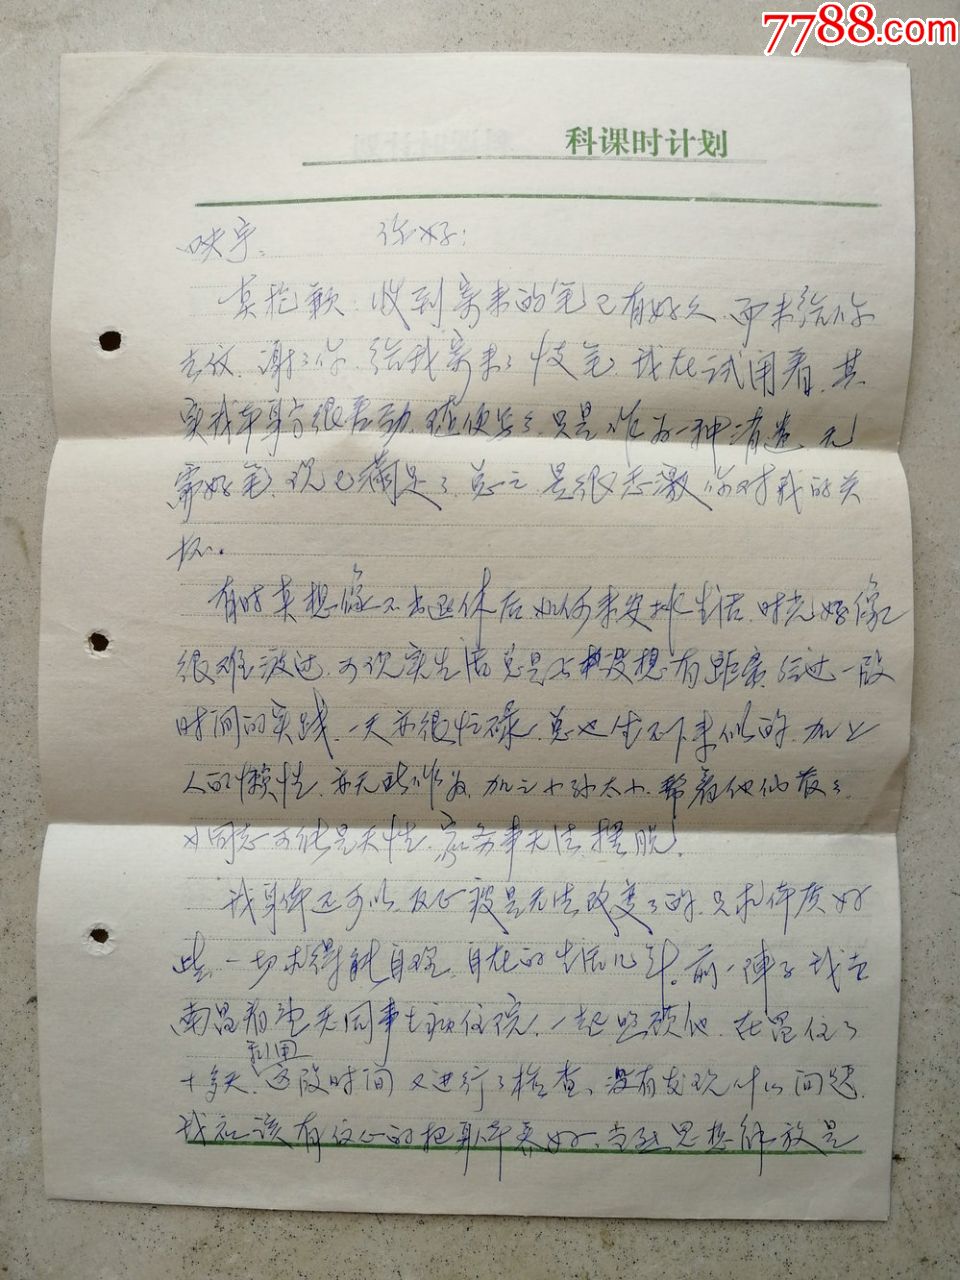 7788.com
科课时计划
映宇. 你好:
真抱歉.收到寄来的笔已有好久.而未给你
去信.谢谢你.给我寄来了支笔.我在试用着.其
实我本身方很.随便写写.只是作为一种消遣.无
需好笔.现已满足了.总之是很感激你对我的关
怀.
有时真想像不出退休后如何来安排生活.时光好像
很难渡过.可现实生活总是与设想有距离.经过一段
时间的实践.一天亦很忙碌.总也生不下来似的.加上
人的懒性.亦无所作为.加之小孙太小.帮着他们带带.
女同志可能是天性.家务事无法摆脱.
我身体还可以.反正是无法改变了的.只求体质好
些.一切求得能自理.自在的生活几年.前一阵子我去
南昌看望老同事住院.一起照顾他.在昌住了
十多天.利用这段时间又进行了检查.没有发现什么问题.
我应该有信心的把身体养好.当然思想解放是